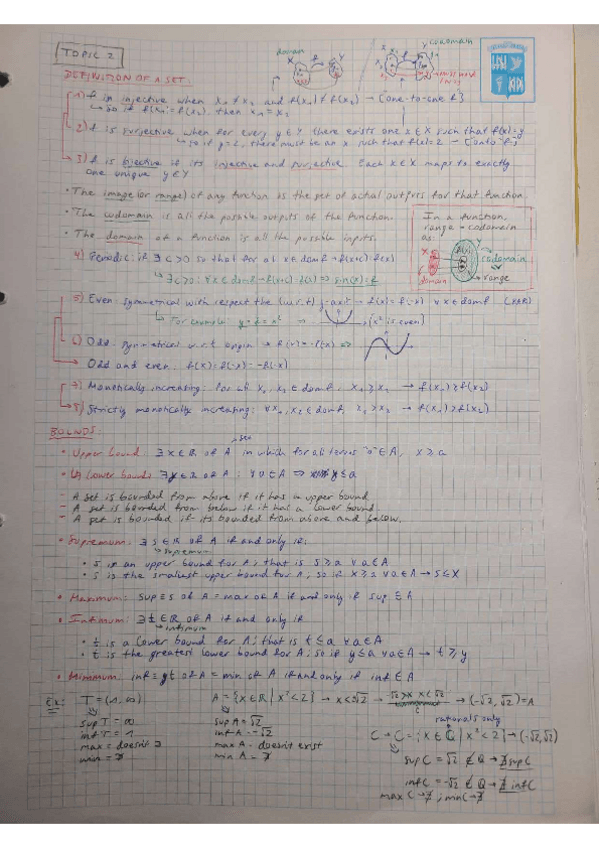 TOPIC 2
domain
f
X
Y
codomain
DEFINITION OF A SET:
1) f is injective when x₁ ≠ x₂ and f(x₁) ≠ f(x₂) → (one-to-one f)
↳ so if f(x₁) = f(x₂), then x₁ = x₂
2) f is surjective when for every y ∈ Y there exists one x ∈ X such that f(x) = y
↳ so if y = 2, there must be an x such that f(x) = 2 → (onto f)
3) f is bijective if its injective and surjective. Each x ∈ X maps to exactly
one unique y ∈ Y
• The image (or range) of any function is the set of actual outputs for that function.
• The codomain is all the possible outputs of the function.
• The domain of a function is all the possible inputs.
In a function,
range = codomain
as:
X
f(x)
Y
codomain
domain
range
4) Periodic: if ∃ c > 0 so that for all x ∈ dom f → f(x+c) = f(x)
↳ ∃ c > 0 : ∀ x ∈ dom f → f(x+c) = f(x) ⇒ sin(x) = f
5) Even: symmetrical with respect the (w.r.t) y-axis → f(x) = f(-x) ∀ x ∈ dom f
↳ For example: y = f = x² → (x² is even)
6) Odd: symmetrical w.r.t origin → f(x) = -f(x) ⇔
→ Odd and even: f(x) = f(-x) = -f(-x)
7) Monotically increasing: for all x₁, x₂ ∈ dom f, x₁ ≥ x₂ → f(x₁) ≥ f(x₂)
8) Strictly monotically increasing: ∀ x₁, x₂ ∈ dom f, x₁ > x₂ → f(x₁) > f(x₂)
BOUNDS:
set
• Upper bound: ∃ x ∈ ℝ of A in which for all terms "a" ∈ A, x ≥ a
• Lower bound: ∃ y ∈ ℝ of A ; ∀ a ∈ A ⇒ y ≤ a
- A set is bounded from above if it has a upper bound
- A set is bounded from below if it has a lower bound.
- A set is bounded if its bounded from above and below.
• Supremum: ∃ s ∈ ℝ of A if and only if:
↳ supremum
• s is an upper bound for A; that is s ≥ a ∀ a ∈ A
• s is the smallest upper bound for A; so if x ≥ a ∀ a ∈ A → s ≤ x
• Maximum: sup = s of A = max of A if and only if sup ∈ A
• Infimum: ∃ t ∈ ℝ of A if and only if
↳ infimum
• t is a lower bound for A; that is t ≤ a ∀ a ∈ A
• t is the greatest lower bound for A; so if y ≤ a ∀ a ∈ A → t ≥ y
• Minimum: inf = t of A = min of A if and only if inf ∈ A
Ex: T = (1, ∞)
sup T = ∞
inf T = 1
max = doesn't ∃
min = ∄
A = {x ∈ ℝ | x² < 2} → x < √2 → → (-√2, √2) = A
sup A = √2
inf A = -√2
max A = doesn't exist
min A = ∄
rationals only
C → C = {x ∈ ℚ | x² < 2} → (-√2, √2)
sup C = √2 ∉ ℚ → ∄ sup C
inf C = -√2 ∉ ℚ → ∄ inf C
max C → ∄ ; min C → ∄